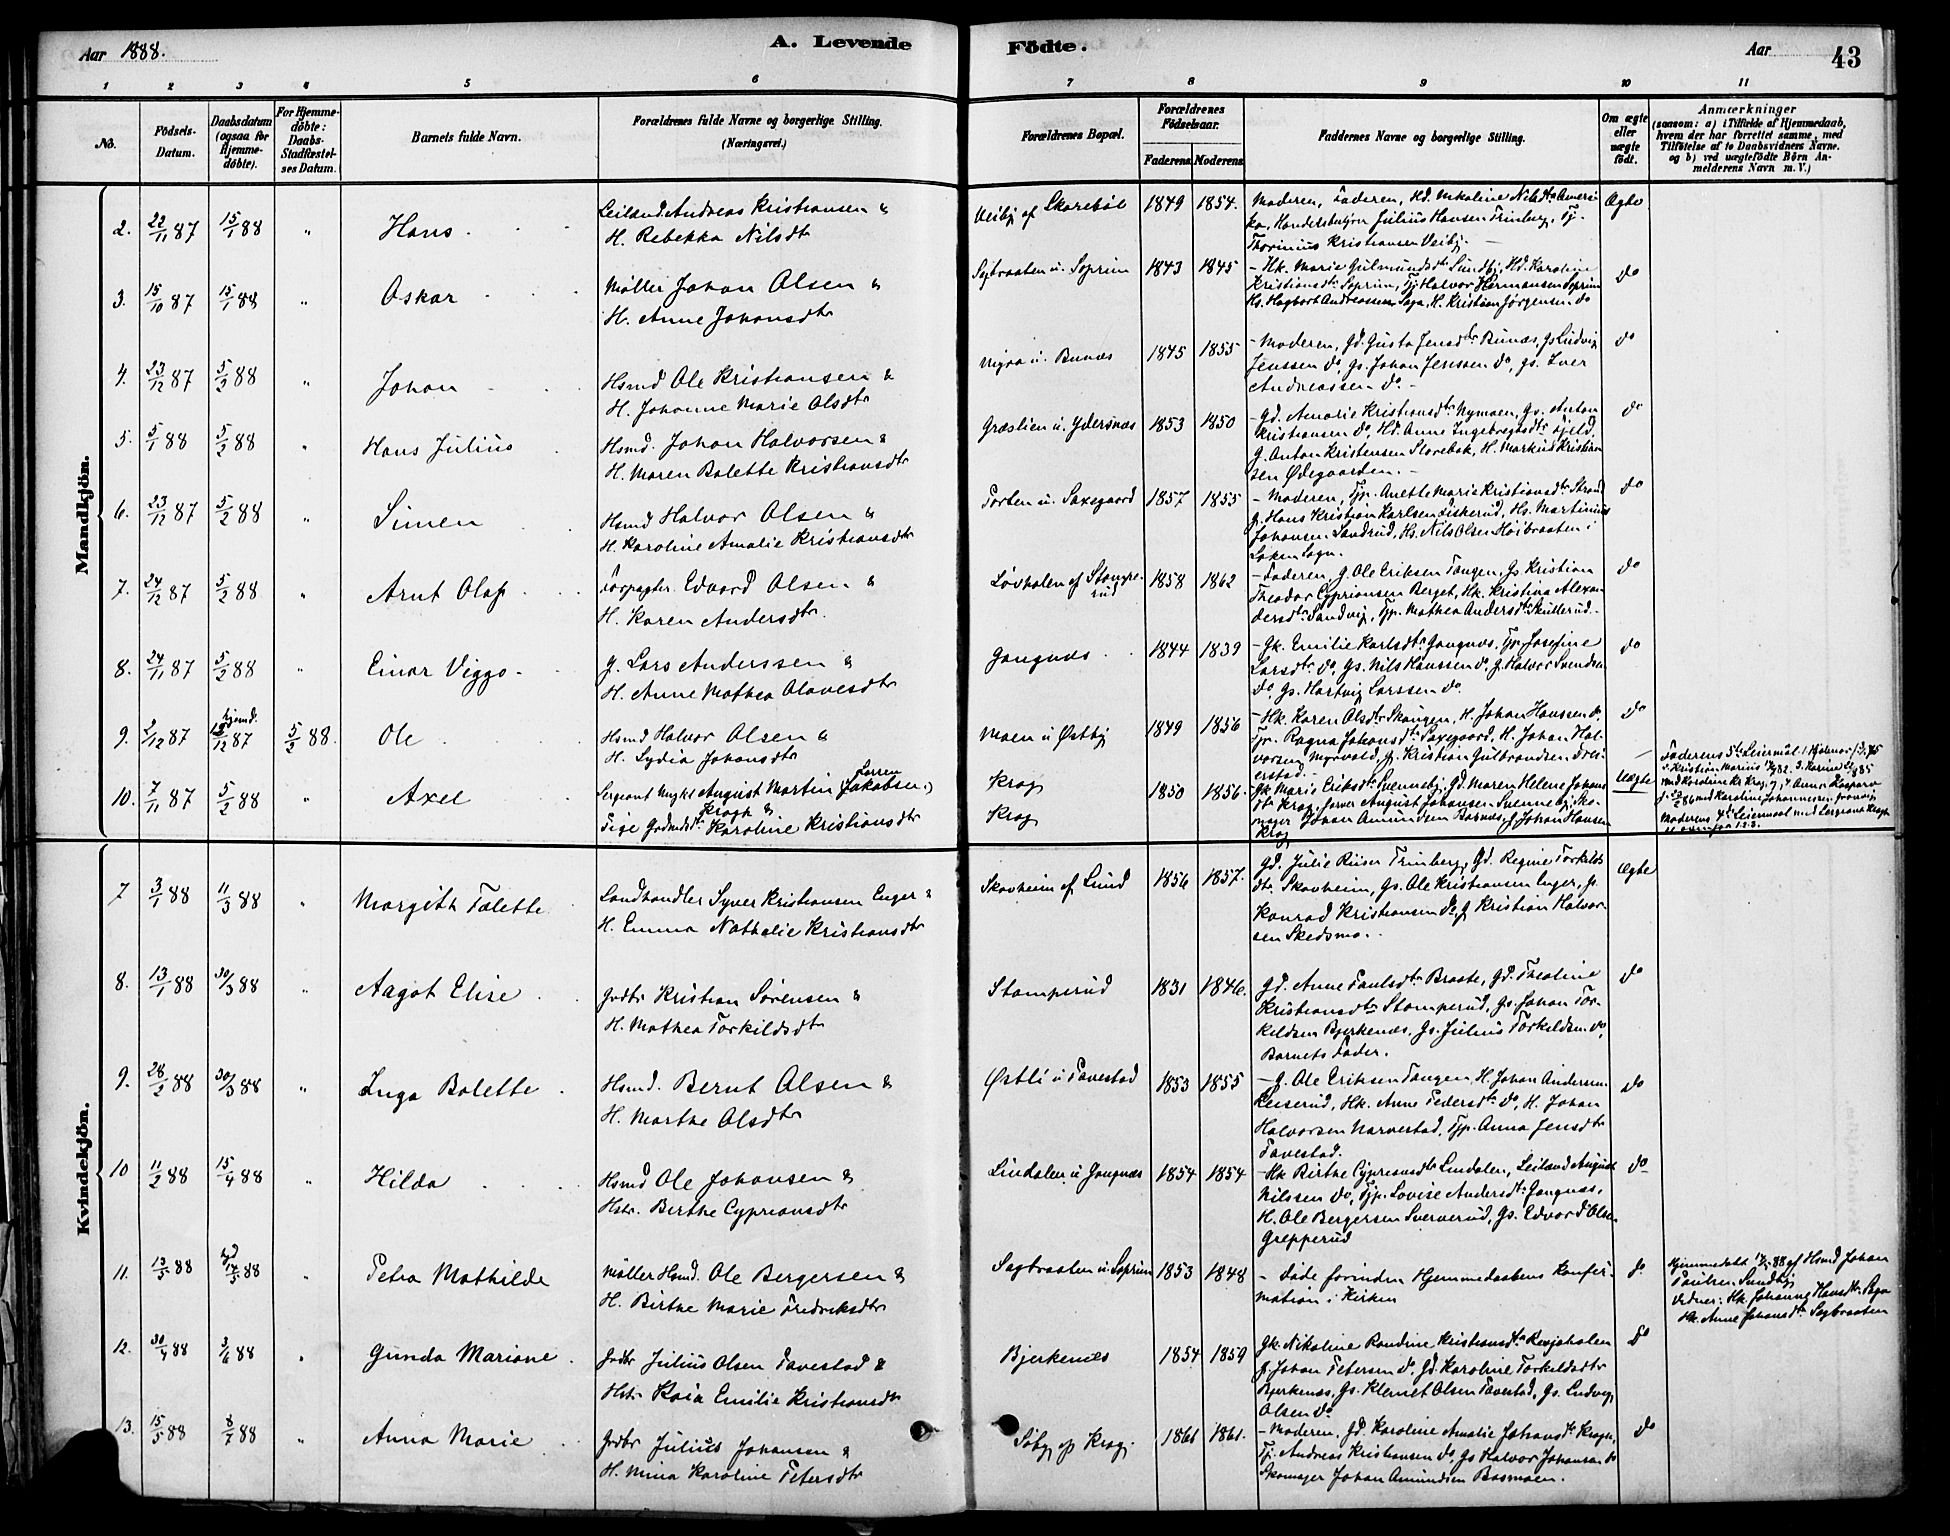 Aar 1888. A. Levende Födte. Aar 43
1 2 3 4 5 6 7 8 9 10 11
No. Födsels-Datum. Daabsdatum (ogsaa for Hjemmedöbte). For Hjemmedöbte: Daabs-Stadfæstelses Datum. Barnets fulde Navn. Forældrenes fulde Navne og borgerlige Stilling. (Næringsvei.) Forældrenes Bopæl. Forældrenes Födselsaar. Faderens Moderens Faddernes Navne og borgerlige Stilling. Om ægte eller uægte födt. Anmærkninger
(saasom: a) i Tilfælde af Hjemmedaab, hvem der har forrettet samme, med Tilföielse af to Daabsvidners Navne. og b) ved uægtefödte Börn Anmelderens Navn m. V.)
Mandkjön.
2. 22/11 87 15/1 88 " Hans
Leiland Andreas Kristiansen &
H. Rebekka Nilsdtr
Veiby af Skarebøl 1849 1854.
Moderen, Faderen,
Thorinius Kristiansen Veiby.
Ægte
3. 15/10 87 15/1 88 " Oskar
Møller Johan Olsen &
H. Anne Johansdtr
Sagbraaten u. Soprim 1843 1845
Kristiansdtr Soprim, Tj. Halvor Hermansen Soprim
Hs. Hagbart Andreassen Saga, H. Kristian Jörgensen do
do
4. 23/12 87 5/2 88 " Johan
Hsmd Ole Kristiansen &
H. Johanne Marie Olsdtr
u. Bunæs 1845 1855
- Moderen, Gd. Gusta Jensdtr Bunæs, Gs Ludvig
Jenssen do, Gs. Johan Jenssen do, Gs. Iver
Andreassen do -
do
5. 5/1 88 5/2 88 " Hans Julius
Hsmd. Johan Halvorsen &
H. Maren Bolette Kristiansdtr
Græslien u. Ydersnæs 1853 1850
- Gd. Amalie Kristiansdtr Nymoen, Gs. Anton
Kristiansen do, Hd. Anne Ingebregtsdtr Fjeld,
G. Anton Kristensen Storebæk, H. Markus Kristian-
sen Ødegaarden. -
do
6. 23/12 87 5/2 88 " Simen
Hsmd Halvor Olsen &
H. Karoline Amalie Kristiansdtr
Porten u. Saxegaard 1857 1855
- Moderen, Tjp. Anette Marie Kristiansdtr Strand
G. Hans Kristian Karlsen Fiskerud, Hs. Martinius
Johansen Sandrud, Hs. Nils Olsen Høibraaten i
Løken Sogn.
do
7. 24/12 87 5/2 88 " Arnt Olaf
Forpagter Edvard Olsen &
H. Karen Andersdtr.
Løvhølen af Stomperud 1858 1862
- Faderen, G. Ole Eriksen Tangen, Gs. Kristian
Theodor Cypriansen Berget, Hk. Kristina Alexan-
dersdtr Sandvig, Tjp. Mathea Andersdtr Skullerud. -
do
8. 24/11 87 5/2 88 " Einar Viggo
G. Lars Anderssen &
H. Anne Mathea Olavesdtr
Gangnæs 1844 1839
- Gk. Emilie Karlsdtr Gangnæs, Tjp. Josefine
Larsdtr do, Gs. Nils Hanssen do, G. Halvor Svendsen
do, Gs. Hartvig Larssen do.
do
9. 2/12 87 hjemd. 12/12 87 5/2 88. Ole
Hsmd Halvor Olsen &
H. Lydia Johansdtr
Moen u Østby 1849 1856
- Hk. Karen Olsdtr Skaugen, H. Johan Hanssen do,
Tjp. Ragna Johansdtr Saxegaard, H. Johan Hal-
vorsen Myrvold, G. Kristian Gulbrandsen
do
10. 7/11 87 5/2 88 " Axel
Sergeant Ungkl August Martin Jakobsen
Krogh &
Pige Karoline Kristiansdtr
Krog
Krog 1850 1856
Gk. Marie Eriksdtr Svenneby, Gd. Maren Helene Johans-
dtr Krog, August Johansen Svenneby, Sko-
mager Johan Amundsen Basmoen, G Johan Hansen
Krog
Uægte
Faderens 5te Leiermaal
Moderens 4de Leiermaal med Sergeant Krogh
Kvindekjön.
7 3/1 88 11/3 88 " Margith Talette
Landhandler Syver Kristiansen Enger &
H. Emma Nathalie Kristiansdtr
Skovheim af Lund 1856 1857.
Gd. Julie Riiser Trinborg, Gd. Regine Torkilds-
dtr. Skovheim, Gs. Ole Kristiansen Enger, G.
Konrad Kristiansen do, G Kristian Halvor-
sen Skedsmo.
Ægte
8. 13/1 88 30/3 88 " Aagot Elise
Grdbr Kristian Sørensen &
H. Mathea Torkildsdtr
Stomperud 1831 1846.
Gd. Anne Paulsdtr Braate, Gd. Theoline
Kristiansdtr Stomperud, Gs. Johan Tor-
kildsen Bjerkenæs, Gs. Julius Torkildsen do,
Barnets Fader.
do
9. 28/2 88 30/3 88 " Inga Bolette
Hsmd. Bernt Olsen &
H. Marthe Olsdtr
Østli u Tavestad 1853 1855
- G. Ole Eriksen Tangen, H. Johan Andersen
Keiserud, Hk. Anne Pedersdtr do, H. Johan
Halvorsen Narvestad, Tjp. Anna Jensdtr
Tavestad.
do
10 11/2 88 15/4 88 " Hilda
Hsmd Ole Johansen &
Hstr. Birthe Cypriansdtr
Lindalen u Gangnæs 1854 1854
- Hk Birthe Cypriansdtr Lindalen, Leiland August
Nilssen do, Tjp. Lovise Andersdtr Gangnæs,
H. Ole Bergersen Sververud, Gs. Edvard Olsen
Grepperud
do
11. 13/5 88 hjd 14/5 88 " Petra Mathilde
Møller Hsmd. Ole Bergersen &
H. Birthe Marie Fredriksdtr
Sagbraaten u. Soprim 1853 1848
- Døde forinden Hjemmedaabens Konfir-
mation i Kirken
do
Hjemmedøbt 14/5 88 af Hsmd Johan
Paulsen Sundby
Vidner: Hk. Johanne Hansdtr Saga
Hk. Anne Johansdtr Sagbraaten
12. 30/4 88 3/6 88 " Gunda Mariane
Grdbr Julius Olsen Tavestad &
Hstr Kaia Emilie Kristiansdtr
Bjerkenæs 1854 1859
Gk. Nikoline Randine Kristiansdtr
G. Johan Petersen do, Gd. Karoline Torkildsdtr
Bjerkenæs, Gs. Klemet Olsen Tavestad, Gs. Ludvig
Olsen do
do
13. 15/5 88 8/7 88 " Anna Marie
Grdbr Julius Johansen &
H. Mina Karoline Petersdtr
Søby af Krog 1861 1861.
- Moderen, Gd. Karoline Amalie Johansdtr Krog,
Tj. Andreas Kristiansen do, Gs Halvor Johansen do
Skomager Johan Amundsen Basmoen.
do